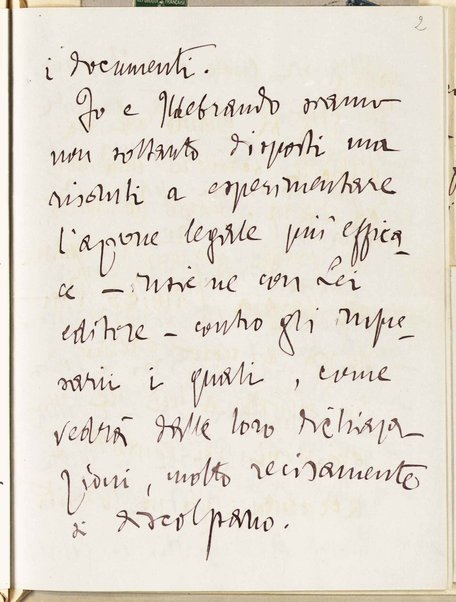 2
i documenti.
Io e Ildebrando siamo
non soltanto disposti ma
risoluti a esperimentare
l'azione legale più effica-
ce – insieme con Lei
editore – contro gli impre-
sarii i quali, come
vedrà dalle loro dichiara
zioni, molto recisamente
si discolpano.